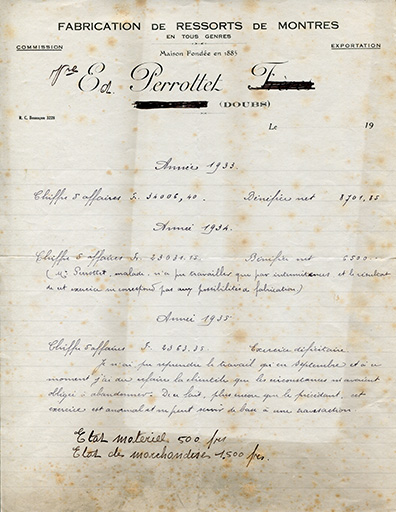 FABRICATION DE RESSORTS DE MONTRES
EN TOUS GENRES
COMMISSION
EXPORTATION
Maison Fondée en 1885
Ed. Perrottet
(DOUBS)
R. C. Besançon 3228
Le 19
Année 1933.
Chiffre d'affaires Fr. 34006,40. Bénéfice net 8701,85
Année 1934.
Chiffre d'affaires Fr. 23031.15. Bénéfice net 5500.-
(Mr Perrottet, malade, n'a pu travailler que par intermittences et le résultat
de cet exercice ne correspond pas aux possibilités de fabrication)
Année 1935
Chiffre d'affaires F. 2363.35 Exercice déficitaire
Je n'ai pu reprendre le travail qu'en septembre et à ce
moment j'ai du refaire la clientèle que les circonstances m'avaient
obligé à abandonner. De ce fait, plus encore que le précédent, cet
exercice est anormal et ne peut servir de base à une transaction
Etat matériel 500 frs
Etat de marchandise 1,500 frs.